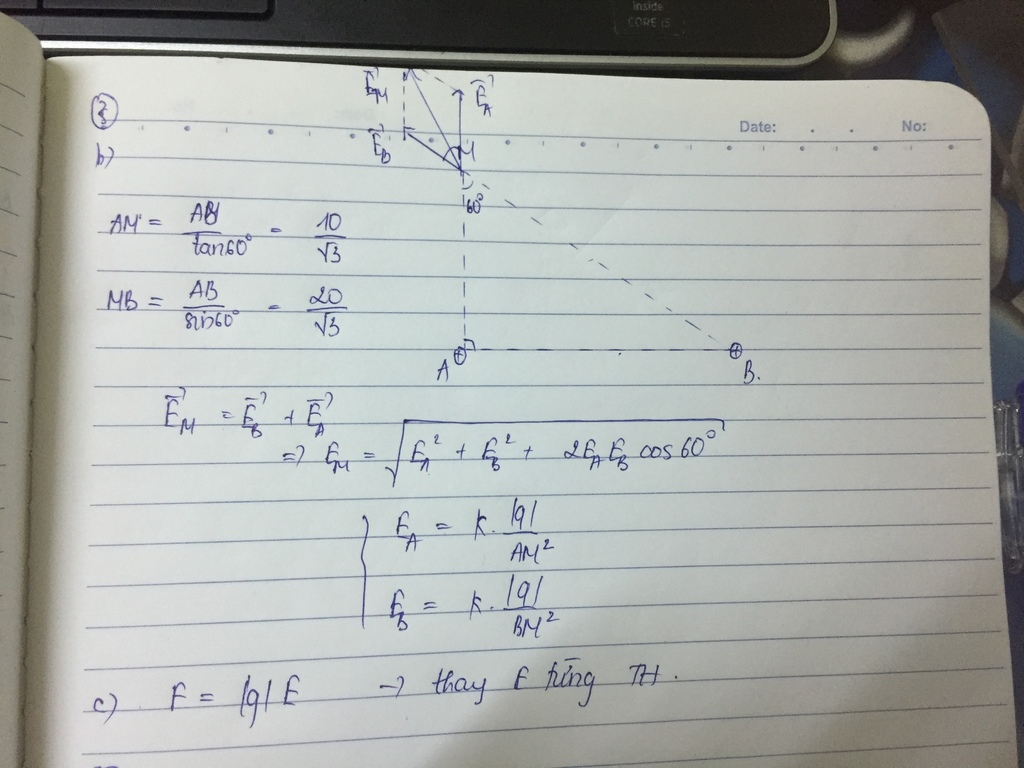 inside
CORE i5
Date: . . No:
③
b)
E⃗_M
E⃗_A
E⃗_B
M
60°
A
B.
AM = AB/tan60° = 10/√3
MB = AB/sin60° = 20/√3
E⃗_M = E⃗_B + E⃗_A
=> E_M = √(E_A² + E_B² + 2E_A E_B cos60°)
E_A = k. |q|/AM²
E_B = k. |q|/BM²
c) F = |q| E → thay E từng TH.